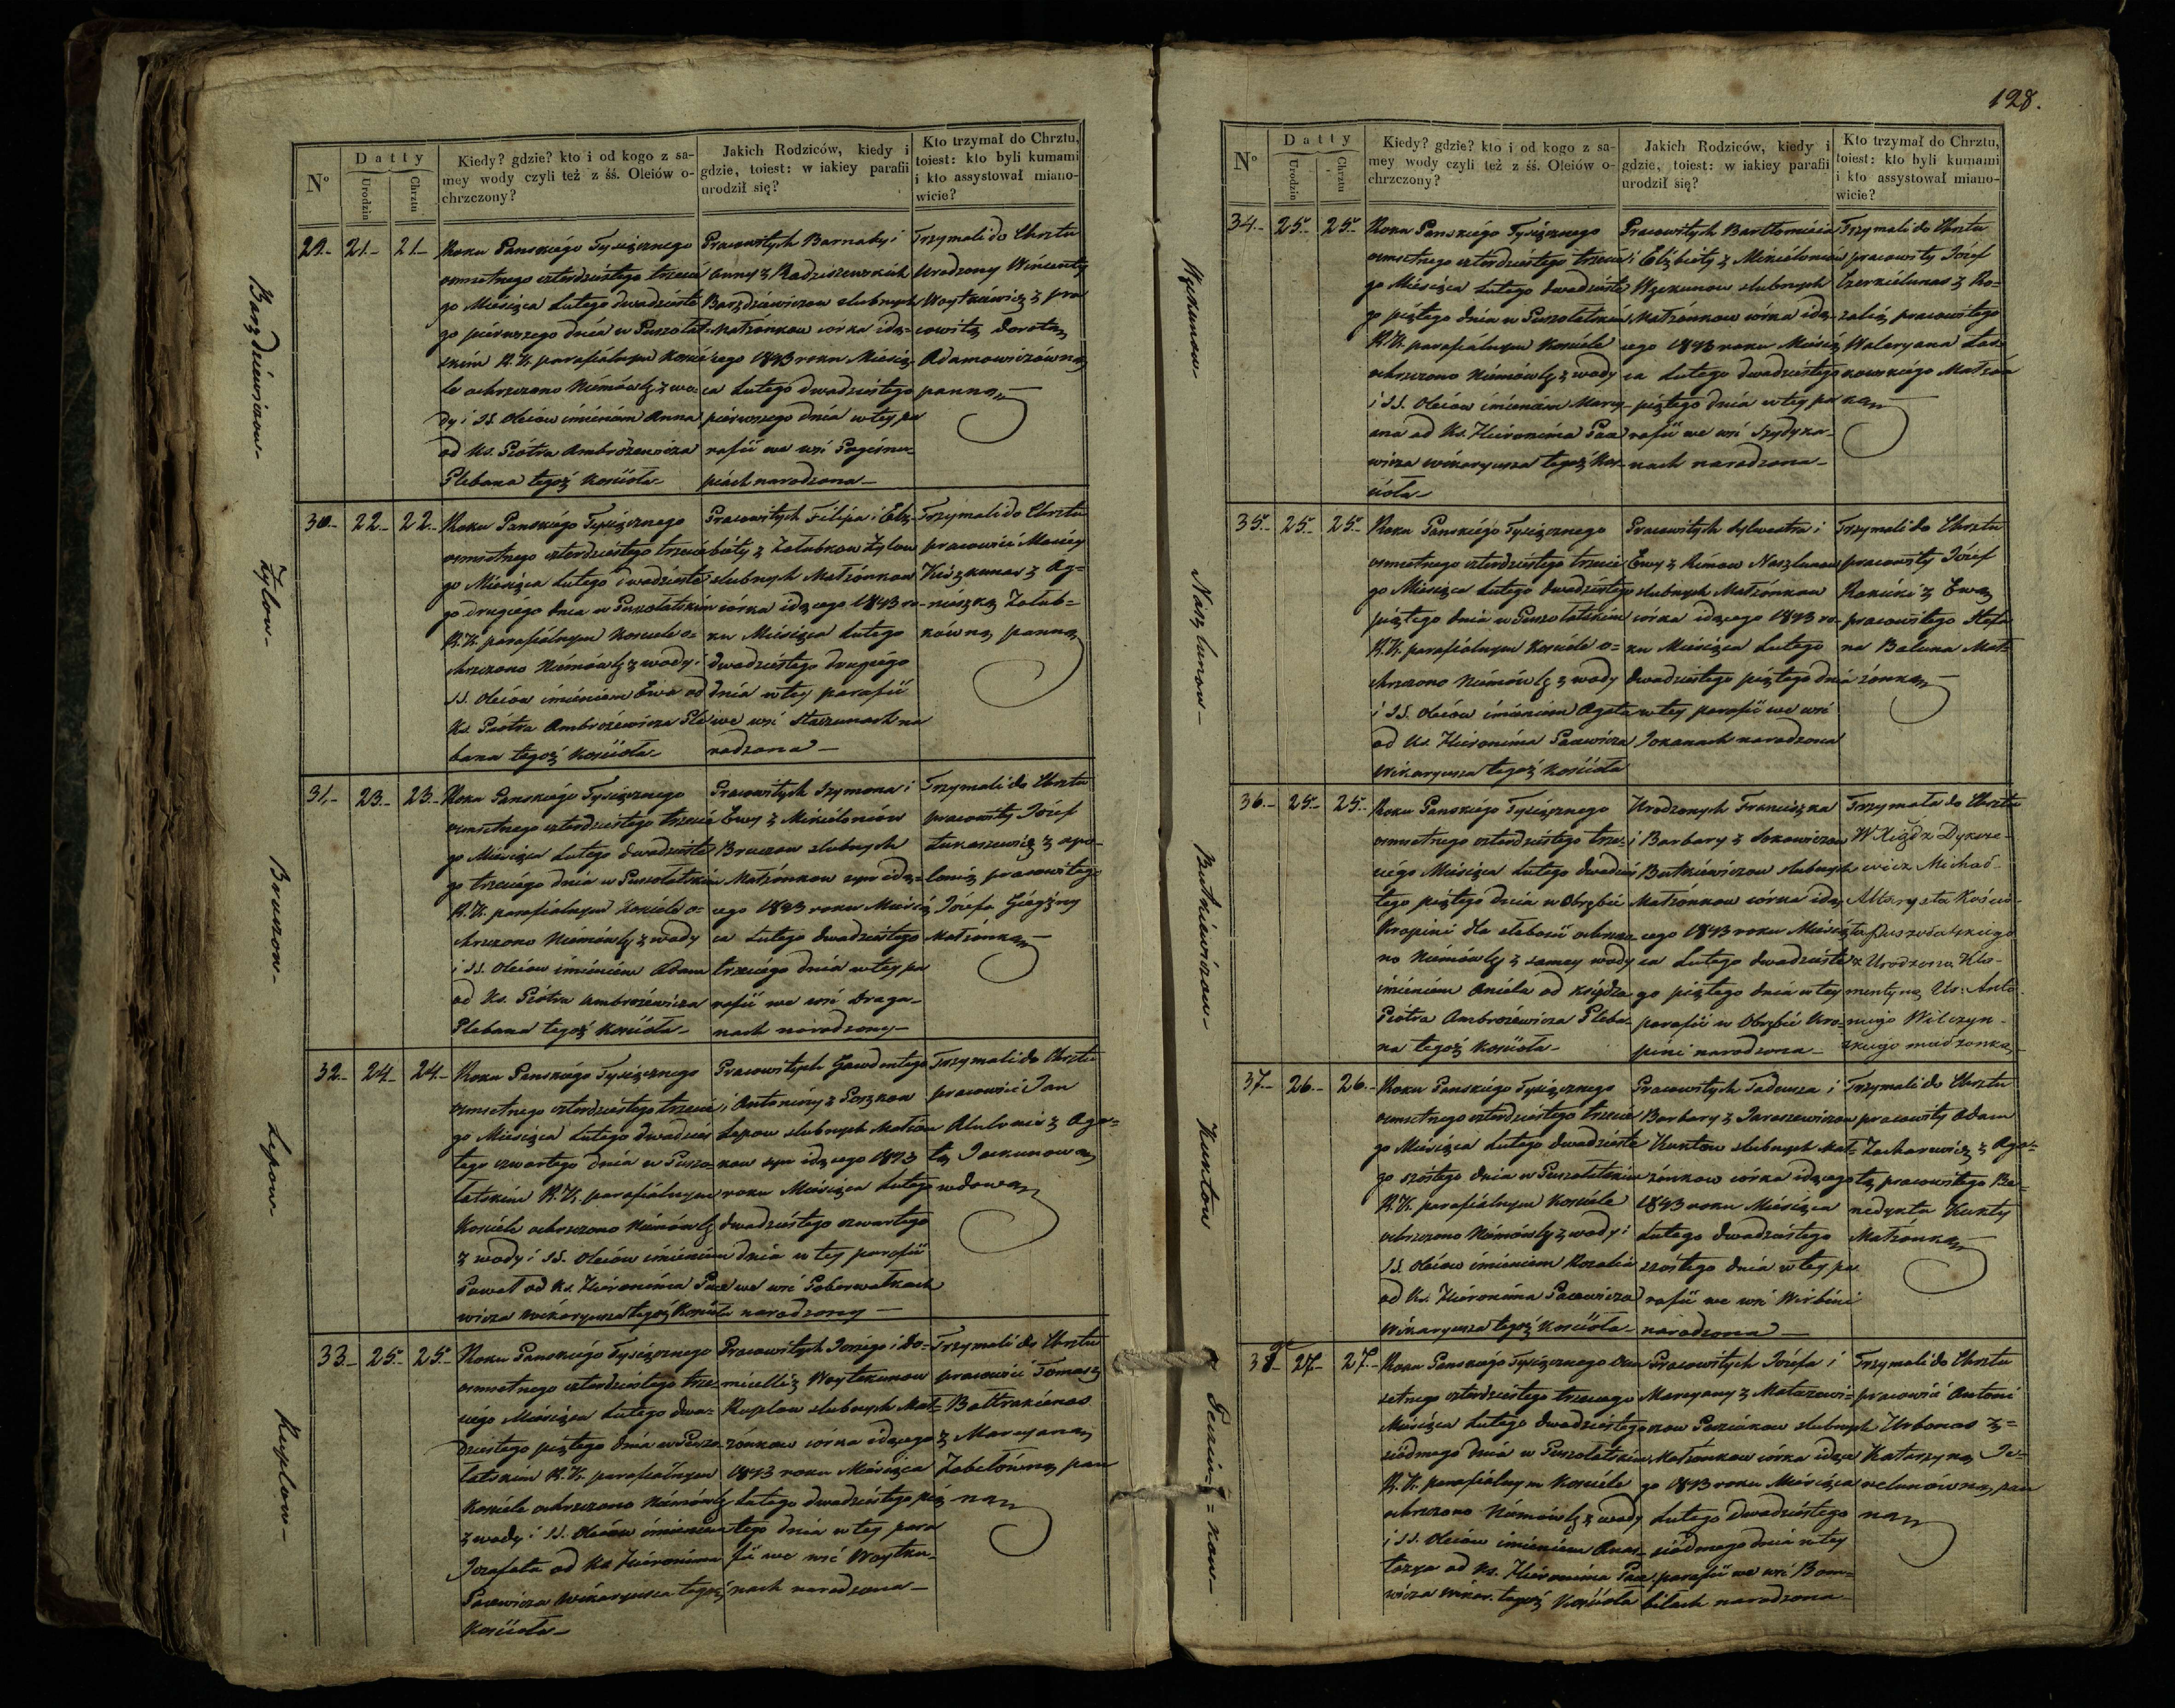 N°
Datty
Urodzin
Chrztu
Kiedy? gdzie? kto i od kogo z sa-
mey wody czyli też z śś. Oleiów o-
chrzczony?
Jakich Rodziców, kiedy i
gdzie, toiest: w iakiey parafii
urodził się?
Kto trzymał do Chrztu,
toiest: kto byli kumami
i kto assystował miano-
wicie?
29.- 21- 21-
Roku Panskiégo Tysiącznego
osmsetnego czterdziéstego trzecié
go Miésiąca Lutego dwadziésté
go piérwszego dnia w Puszołat-
skim R. K. parafiálnym Kościé
le ochrzczono Niémówlę z wo-
dy i SS. Oleiów imiéniém Anna
od Ks. Piótra Ambrożewicza
Plebana tegoż Kościoła-
Pracowitych Barnaby i
Anny z Radziszewskich
Barzdziéwiczow slubnych
Małżonkow córka idą-
cego 1843 roku Miésią-
ca Lutego dwadziéstego
piérwszego dnia w tey pa
rafii we wsi
narodzona-
Trzymali do Chrztu
Urodzony Wincenty
Woytkiéwicz z pra
cowitą Dorotą
Adamowiczówną
panną
30- 22- 22-
Żylow-
Roku Panskiégo Tysiącznego
osmsetnego czterdziéstego trzecié
go Miésiąca Lutego dwadziésté
go drugiégo dnia w Puszołatskim
R. K. parafiálnym Kościele o=
chrzczono Niémówlę z wody i
SS. Oleiów imiéniem Ewa od
Ks. Piótra Ambrożéwicza Ple
bana tegoż Kościoła-
Pracowitych Filipa i Elż-
biéty z Załubkow Żylow
slubnych Małżonkow
córka idącego 1843 ro-
ku Miésiąca Lutego
dwadziéstego drugiégo
dnia w tey parafii
we wsi Staczunach na
rodzona-
Trzymali do Chrztu
pracowici Maciéy
z Ag-
niészką Załub=
kówną panną
31,- 23- 23-
Bruzow-
Roku Panskiégo Tysiącznego
osmsetnego czterdziéstego trzecié
go Miésiąca Lutego dwadziésté
go trzeciégo dnia w Puszołatskim
R. K. parafiálnym Kościéle o=
chrzczono Niémówlę z wody
i SS. Oleiów imiéniem Adam
od Ks. Piótra Ambrożéwicza
Plebana tegoż Kościoła-
Pracowitych Szymona i
Ewy z Mikiélóniów
Bruzow slubnych
Małżonkow syn idą-
cego 1843 roku Miésią
ca Lutego dwadziéstego
trzeciégo dnia w tey pa
rafii we wsi Draga-
nach narodzony-
Trzymali do Chrztu
pracowity Józef
Łukaszewicz z Apo-
lonią pracowitego
Józefa
Małżonką
32- 24- 24-
Lepow-
Roku Panskiégo Tysiącznego
osmsetnego czterdziéstego trzecié
go Miésiąca Lutego dwadziés
tego czwartego dnia w Puszo-
łatskim R. K. parafiálnym
Kościéle ochrzczono Niémówlę
z wody i SS. Oleiów imiéniem
Paweł od Ks. Hiéronima Pace
wicza Wikaryusza tegoż Kościoła
Pracowitych Gaudentego
i Antoniny z Poszkow
Lepow slubnych Małżon
kow syn idącego 1843
roku Miésiąca Lutego
dwadziéstego czwartego
dnia w tey parafii
we wsi Poberwałkach
narodzony-
Trzymali do Chrztu
pracowici Jan
z Aga-
tą Jackunową
wdową
33- 25- 25-
Kuplow-
Roku Panskiégo Tysiącznego
osmsetnego czterdziéstego trze-
ciégo Miésiąca Lutego dwa-
dziestego piątego dnia w Puszo
łatskim R. K. parafiálnym
Kościéle ochrzczono Niémówlę
z wody i SS. Oleiów imiéniem
Jozafata od Ks. Hiéronima
Pacewicza Wikaryusza tegoż
Kościoła-
Pracowitych Jerzégo i Do-
micelli z Woytekunow
Kuplow slubnych Mał-
żonkow córka idącego
1843 roku Miésiąca
Lutego dwadziéstego pią
tego dnia w tey para
fii we wsi Woytku-
nach narodzona-
Trzymali do Chrztu
pracowici Tomasz
Bałtrakiénas
z Maryaną
Zabełówną pan
ną
128.
N°
Datty
Urodzin
Chrztu
Kiedy? gdzie? kto i od kogo z sa-
mey wody czyli też z śś. Oleiów o-
chrzczony?
Jakich Rodziców, kiedy i
gdzie, toiest: w iakiey parafii
urodził się?
Kto trzymał do Chrztu,
toiest: kto byli kumami
i kto assystował miano-
wicie?
34- 25- 25-
Roku Panskiégo Tysiącznego
osmsetnego czterdziéstego trzecié
go Miésiąca Lutego dwadziésté
go piątego dnia w Puszołatskim
R. K. parafiálnym Kościele
ochrzczono Niémówlę z wody
i SS. Oleiów imiéniém Mary-
ana od Ks. Hiéronima Pace
wicza wikaryusza tegoż Koś-
cioła-
Pracowitych Bartłomiéia
i Elżbiéty z Mikiéloniów
slubnych
Małżonkow córka idą-
cego 1843 roku Miésią
ca Lutego dwadziéstego
piątego dnia w tey pa
rafii we wsi Szydyka-
nach narodzona-
Trzymali do Chrztu
pracowity Józef
z Ro-
zalią pracowitego
Waleryana
Małżon
ką
35- 25- 25-
Naszlunow-
Roku Panskiégo Tysiącznego
osmsetnego czterdziestego trzecié
go Miésiąca Lutego dwadziéstego
piątego dnia w Puszołatskim
R. K. parafiálnym Kościéle o=
chrzczono Niémówlę z wody
i SS. Oleiów imiéniem Agata
od Ks. Hiéronima Pacewicza
Wikaryusza tegoż Kościoła
Pracowitych Sylwestra i
Ewy z Rimow Naszlunow
slubnych Małżonkow
córka idącego 1843 ro-
ku Miésiąca Lutego
dwadziestego piątego dnia
w tey parafii we wsi
Jokanach narodzona
Trzymali do Chrztu
pracowity Józef
z Ewą
pracowitego Stefa
na Baluna Mał-
żonką
36- 25- 25-
Butkiéwiczow-
Roku Panskiégo Tysiącznego
osmsetnego czterdziestego trze-
ciégo Miésiąca Lutego dwadziés
tego piątego dnia w Obrębié
Kropini dla słabości ochrzczo-
no Niémówlę z samey wody
imiéniem Aniela od księdza
Piótra Ambrożéwicza Pleba-
na tegoż Kościoła-
Urodzonych Franciszka
i Barbary z Sokowiczow
Butkiéwiczow slubnych
Małżonkow córka idą
cego 1843 roku Miésią
ca Lutego dwadziésté
go piątego dnia w tey
parafii w Obrębié Kro-
pini narodzona-
Trzymała do Chrztu
W Xiądz Dyksze-
wicz Michał
Altarysta Kościo-
ła Puszołatskiego
z Urodzoną Kle-
mentyną Ur: Anto-
niego Wilczyn-
skiego małżonką
37- 26- 26-
Kuntow
Roku Panskiégo Tysiącznego
osmsetnego czterdziestego trzecié
go Miésiąca Lutego dwadziésté
go szóstego dnia w Puszołatskim
R. K. parafiálnym Kościele
ochrzczono Niémówlę z wody i
SS. Oleiów imiéniem Rozalia
od Ks. Hiéronima Pacewicza
Wikaryusza tegoż Kościoła-
Pracowitych Tadeusza i
Barbary z Jaraszewiczow
Kuntow slubnych Mał-
żonkow córka idącego
1843 roku Miésiąca
Lutego dwadziéstego
szóstego dnia w tey pa
rafii we wsi Wirbini
narodzona-
Trzymali do Chrztu
pracowity Adam
Zacharewicz z Aga=
tą pracowitego Be-
nedykta Kunty
Małżonką
38- 27- 27-
Roku Panskiégo Tysiącznego osm
setnego czterdziéstego trzeciego
Miésiąca Lutego dwadziéstego
siódmego dnia w Puszołatskim
R. K. parafiálnym Kościéle
ochrzczono Niémówlę z wody
i SS. Oleiów imiéniem Anas-
tazya od Ks. Hiéronima Pace
wicza Wikar. tegoż Kościoła
Pracowitych Józefa i
Maryany z
slubnych
Małżonkow córka idące
go 1843 roku Miésiąca
Lutego dwadziéstego
siódmego dnia w tey
parafii we wsi Bom=
bilach narodzona-
Trzymali do Chrztu
pracowici Antoni
Urbonas z=
Katarzyną
pan
ną